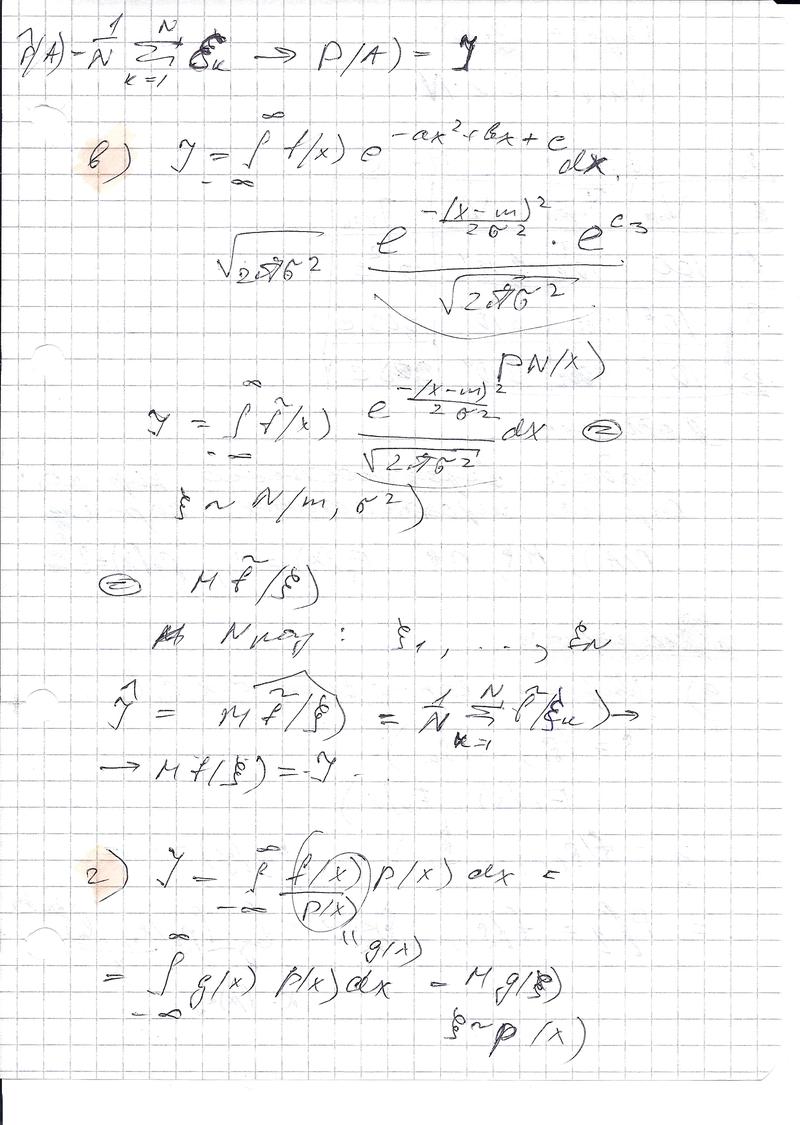 P̂(A) = 1/N ∑_{k=1}^{N} ξ_k → P(A) = J
в) J = ∫_{-∞}^{∞} f(x) e^{-ax² + bx + c} dx.
√(2πσ²) e^{-(x-m)²/2σ²} · e^{c₃} / √(2πσ²)
p_N(x)
J = ∫_{-∞}^{∞} f̃(x) e^{-(x-m)²/2σ²} / √(2πσ²) dx ⊜
ξ ~ N(m, σ²)
⊜ M f̃(ξ)
N раз : ξ₁, ..., ξ_N
Ĵ = M f̃(ξ) = 1/N ∑_{k=1}^{N} f̃(ξ_k) →
→ M f(ξ) = J.
г) J = ∫_{-∞}^{∞} (f(x)/p(x)) p(x) dx =
" g(x)
= ∫_{-∞}^{∞} g(x) p(x) dx = M g(ξ)
ξ ~ p(x)